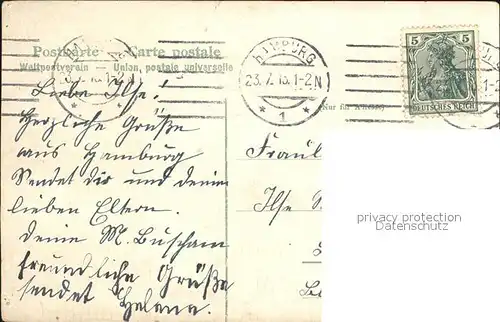 Postkarte — Carte postale
Weltpostverein — Union postale universelle
HAMBURG
23.7.13.1-2N
* 1 *
5
DEUTSCHES REICH
Nur für
Liebe Ilse!
Herzliche Grüße
aus Hamburg
Sendet dir und deine
lieben Eltern.
deine M. Buscham
freundliche Grüße
sendet Helena.
Fräul
Ilse
privacy protection
Datenschutz